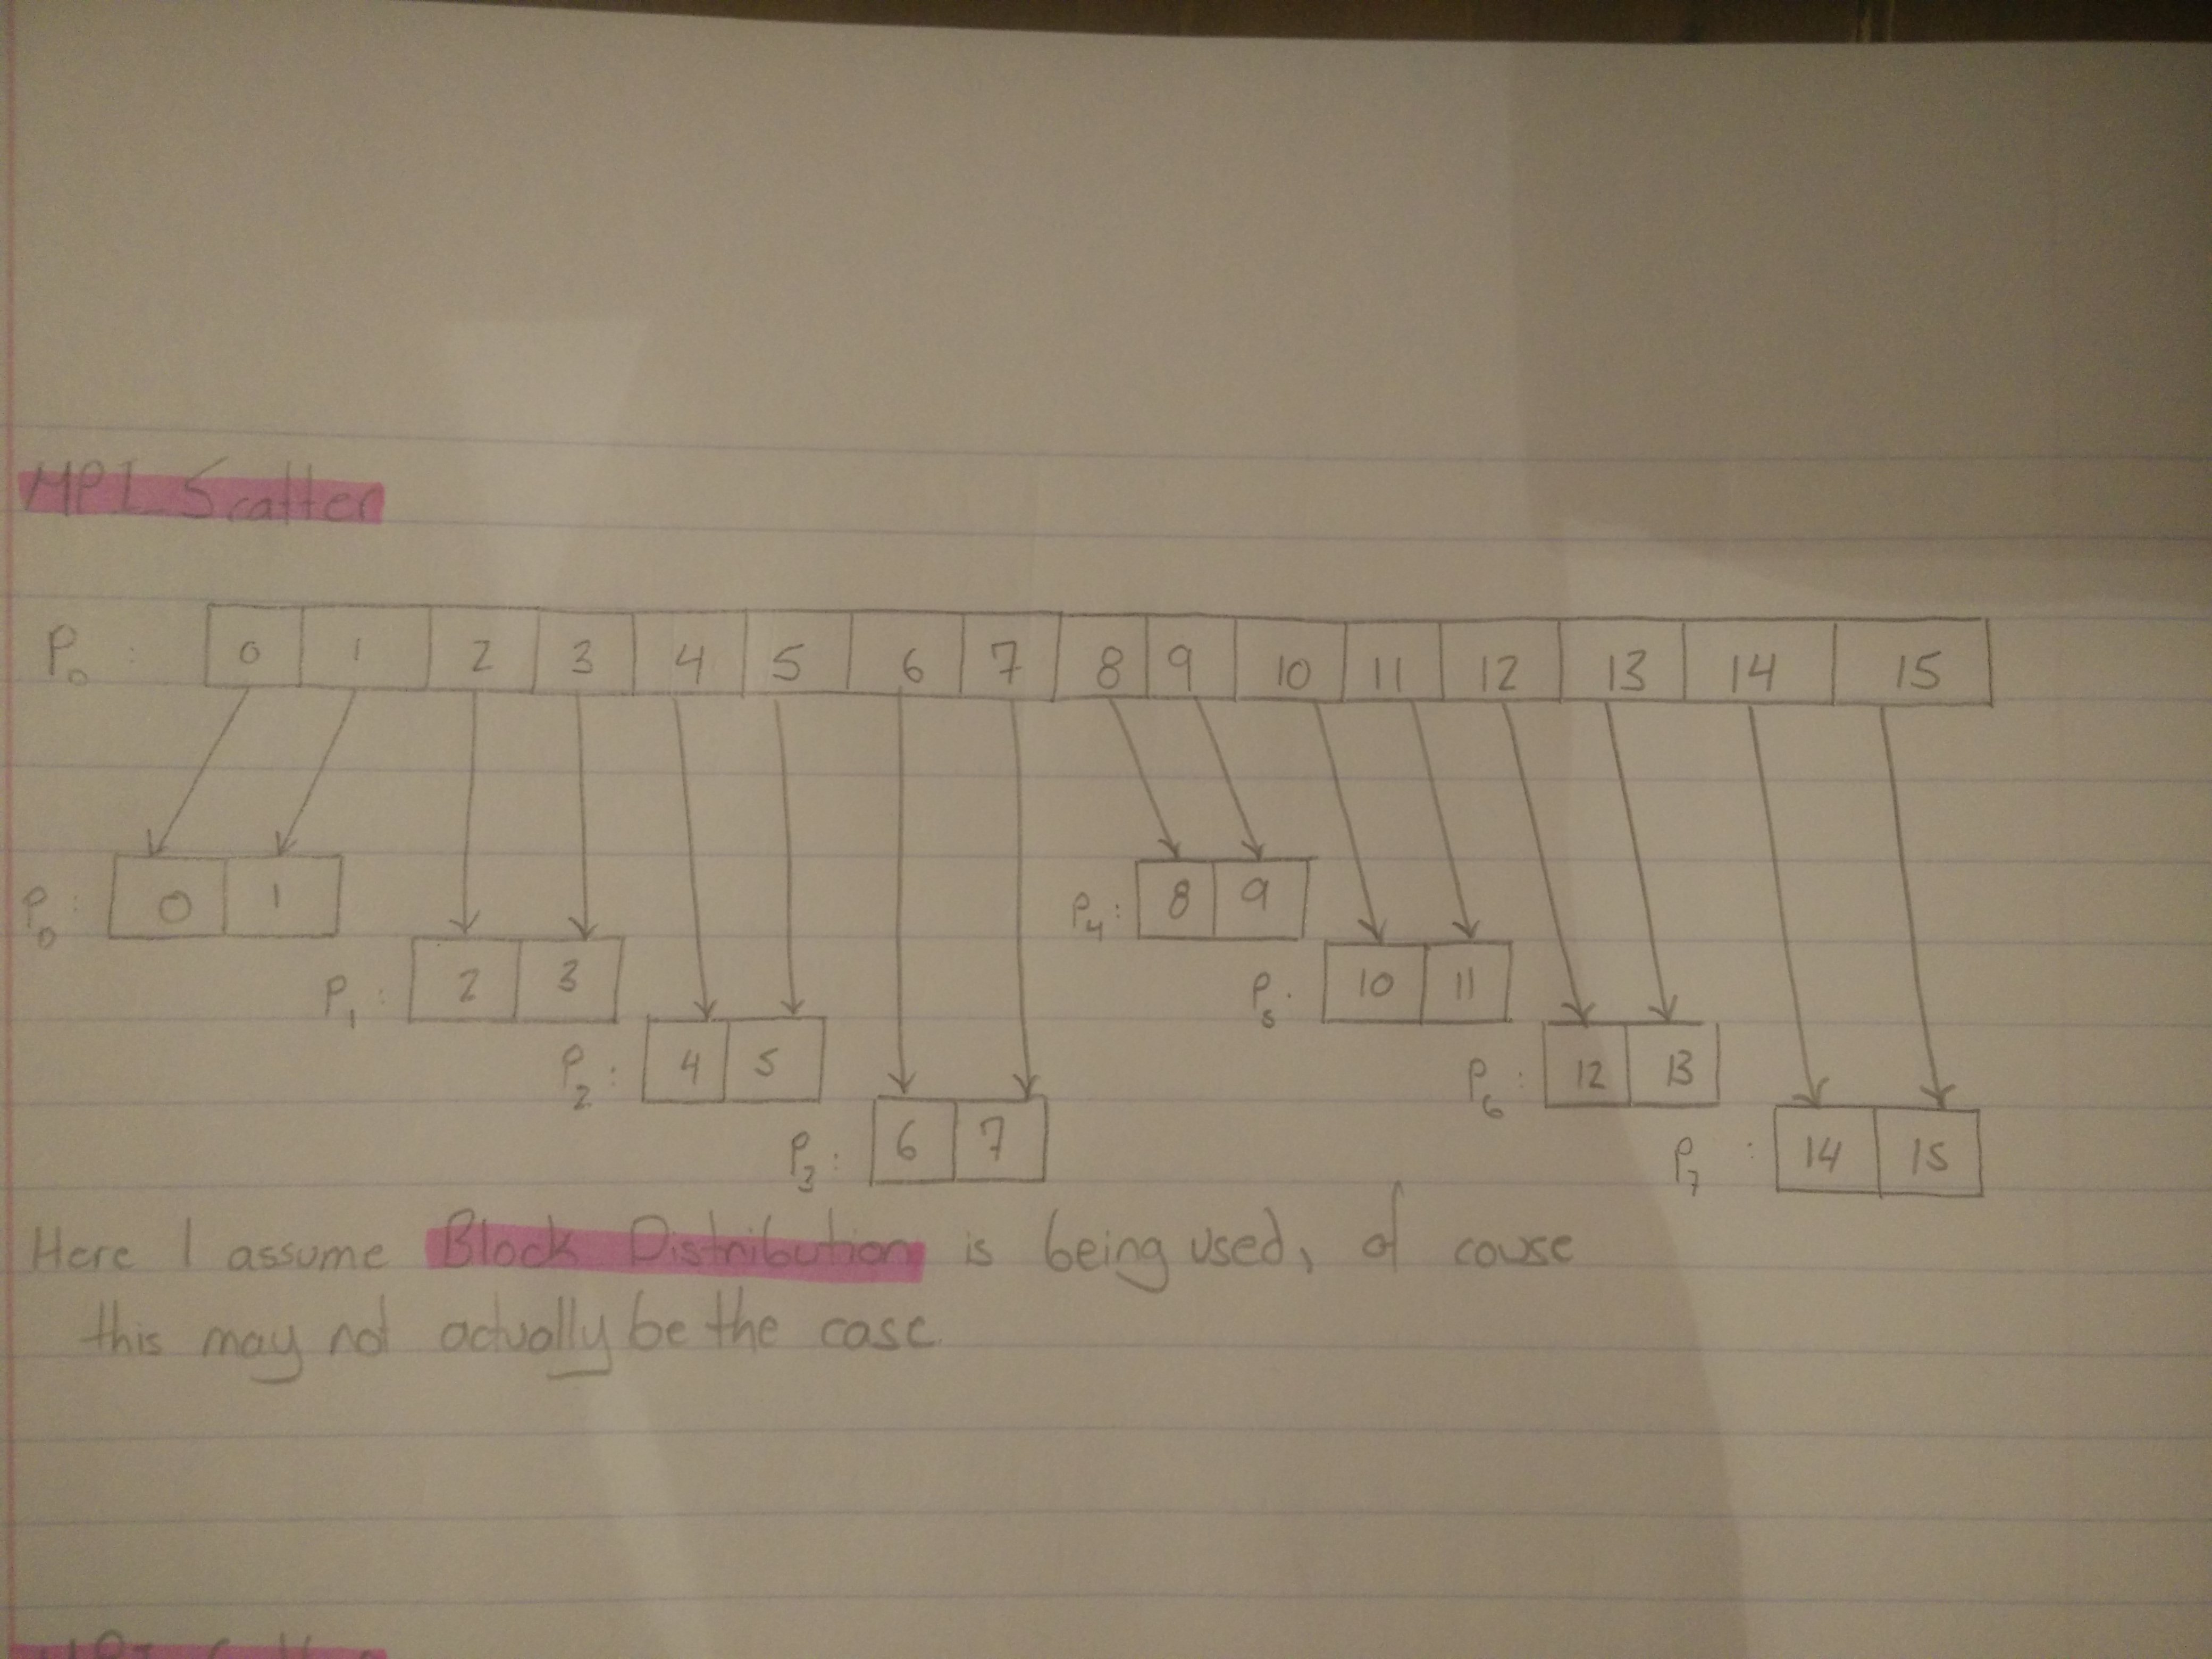 MPI_Scatter
P0 : 0 1 2 3 4 5 6 7 8 9 10 11 12 13 14 15
P0 : 0 1
P4 : 8 9
P1 : 2 3
P5 : 10 11
P2 : 4 5
P6 : 12 13
P3 : 6 7
P7 : 14 15
Here I assume Block Distribution is being used, of couse
this may not actually be the case